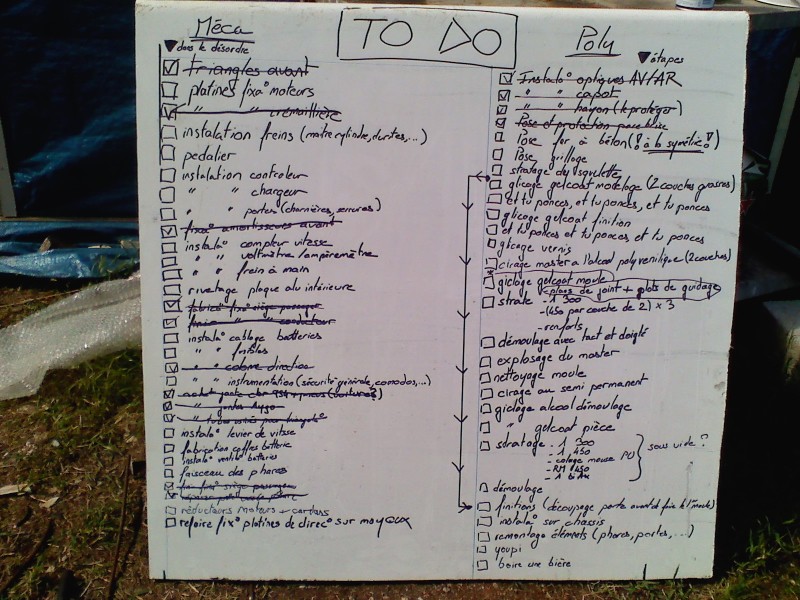 TO DO
Méca
dans le désordre
triangles avant
platines fixa° moteurs
" " crémaillière
instalation freins (maitre cylindre, durites, ...)
pedalier
instalation controleur
" " chargeur
" " portes (charnières, serrures)
fixa° amortisseurs avant
instala° compteur vitesse
" " voltmètre/ampèremètre
" " frein à main
rivetage plaque alu intérieure
fabrica° fixa° siège passager
" " conducteur
instala° cablage batteries
" "
" " colonne direction
" " instrumentation (sécurité générale, comodos, ...)
" jantes Aygo
instala° levier de vitesse
fabrication coffres batterie
instala° ventila° batteries
faisceau des phares
fixa° siège passager
réducteurs moteurs + cardans
refaire fix° platines de direc° sur moyeux
Poly
étapes
Instala° optiques AV/AR
" " capot
" " hayon (le protéger)
Pose et protection pare brise
Pose fer à béton (! à la symétrie !)
Pose grillage
stratage des squelette
giclage gelcoat modelage (2 couches grasses)
et tu ponces, et tu ponces, et tu ponces
giclage gelcoat finition
et tu ponces et tu ponces et tu ponces
giclage vernis
cirage master a l'alcool polyvenilique (2 couches)
giclage gelcoat moule
strate - 1 300
plans de joint + plots de guidage
- (450 par couche de 2) x 3
- renforts
démoulage avec tact et doigté
explosage du master
nettoyage moule
cirage au semi permanent
giclage alcool démoulage
" gelcoat pièce
stratage - 1 300
- 1 450
- colage mousse PU
- RM 450
- 1 biax
sous vide ?
démoulage
finitions (découpage porte avant de faire le moule)
instala° sur chassis
remontage éléments (phares, portes, ...)
youpi
boire une bière